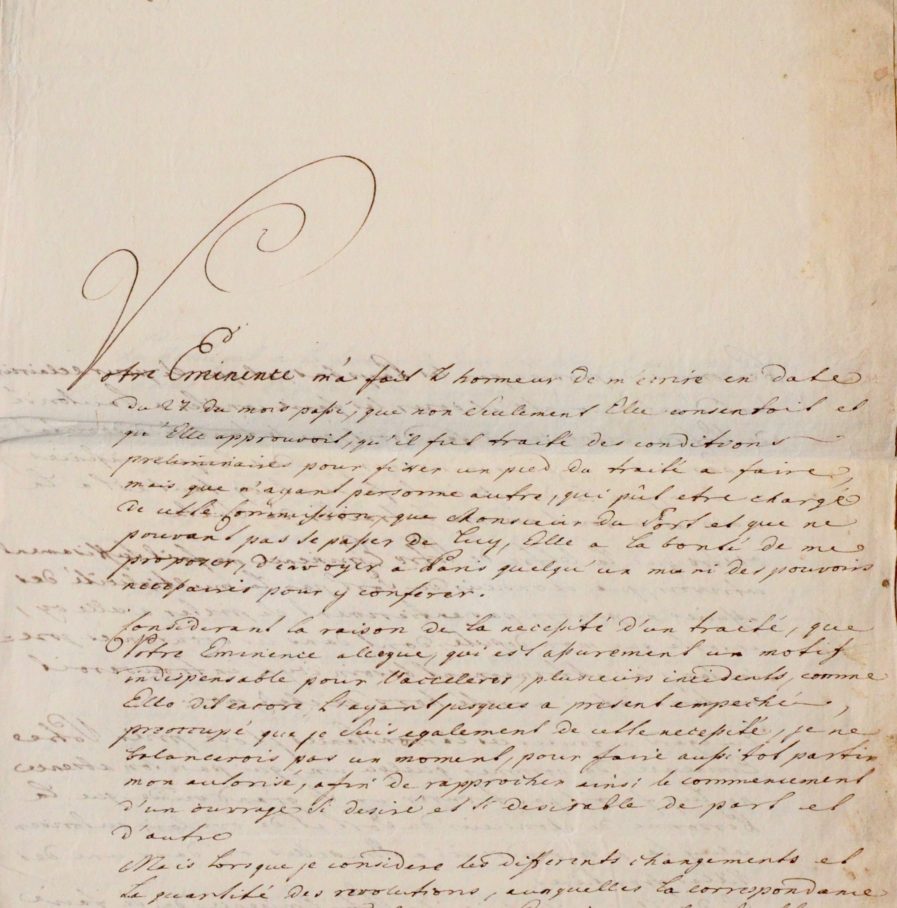 Votre Eminence m'a fait l'honneur de m'ecrire en date
du 27 du mois passé, que non seulement Elle consentoit et
qu'Elle approuvoit, qu'il fut traité des conditions
preliminaires pour fixer un pied du traité a faire,
mais que n'ayant personne autre, qui pût etre chargé
de cette Commission, que Monsieur du Fort et que ne
pouvant pas se passer de Luy, Elle a la bonté de me
proposer, d'envoyer a Paris quelqu'un muni des pouvoirs
necessaires pour y conferer.
Considerant la raison de la necessité d'un traité, que
Votre Eminence allegue, qui est asurement un motif
indispensable pour l'accelerer, plusieurs incidents, comme
Elle dit encore L'ayant jusques a present empeché,
preoccupé que je suis egalement de cette necessité, je ne
balancerois pas un moment, pour faire aussitot partir
mon autorisé, afin de rapprocher ainsi le commencement
d'un ouvrage si desiré et si desirable de part et
d'autre
Mais lorsque je considere les differents changements et
la quantité des revolutions, auxquelles la correspondance